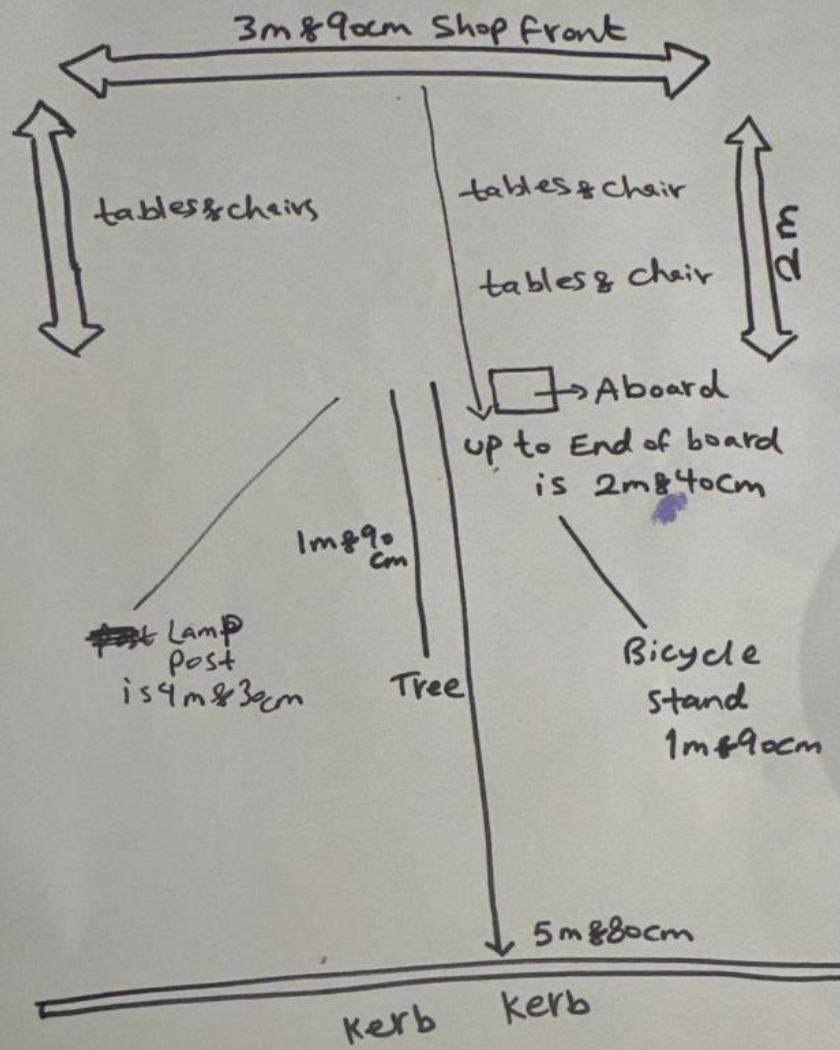 3m&90cm Shop front
tables&chairs
tables&chair
2m
tables& chair
Aboard
up to End of board
is 2m&40cm
1m&90
cm
Lamp
Post
is 4m&30cm
Tree
Bicycle
stand
1m&90cm
5m&80cm
Kerb
Kerb